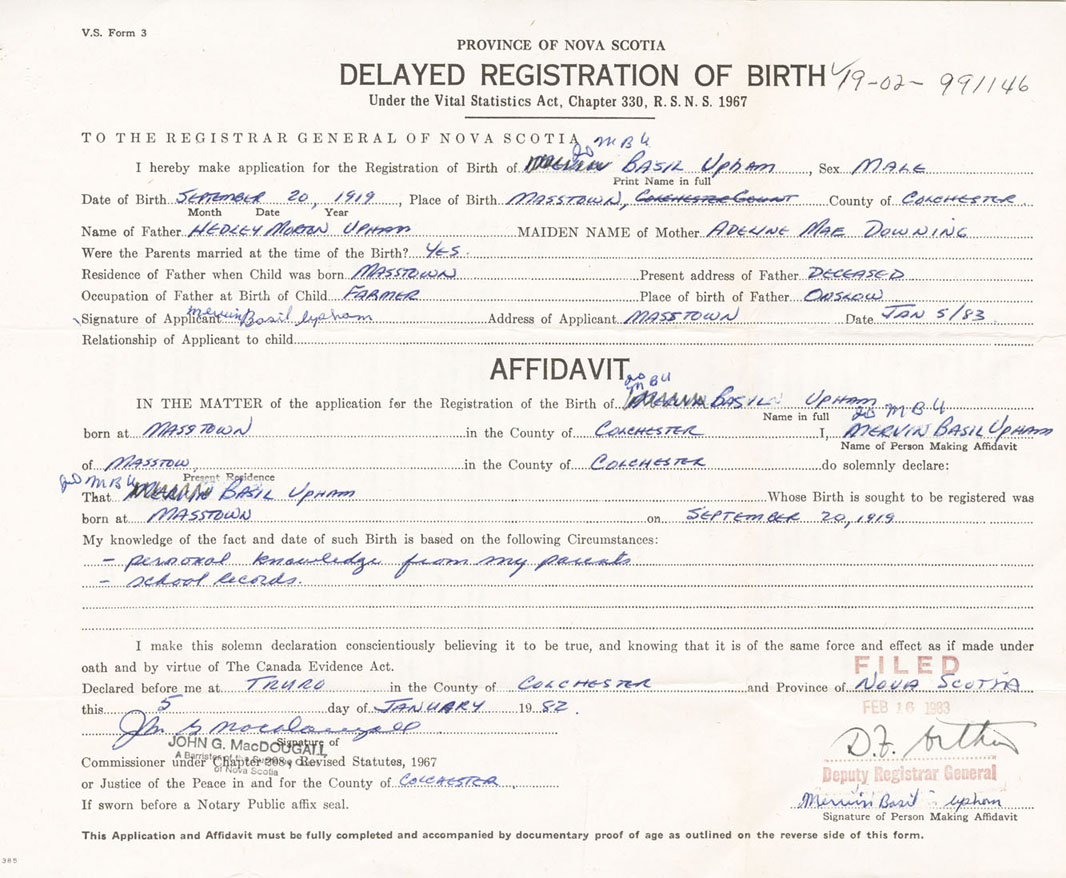 V.S. Form 3
PROVINCE OF NOVA SCOTIA
DELAYED REGISTRATION OF BIRTH 19-02-991146
Under the Vital Statistics Act, Chapter 330, R.S.N.S. 1967
TO THE REGISTRAR GENERAL OF NOVA SCOTIA
MBU
I hereby make application for the Registration of Birth of BASIL UPHAM, Sex MALE
Print Name in full
Date of Birth SEPTEMBER 20, 1919, Place of Birth MASSTOWN, County of COLCHESTER
Month Date Year
Name of Father HEDLEY MORTON UPHAM MAIDEN NAME of Mother ADELINE MAE DOWNING
Were the Parents married at the time of the Birth? YES.
Residence of Father when Child was born MASSTOWN Present address of Father DECEASED
Occupation of Father at Birth of Child FARMER Place of birth of Father ONSLOW
Signature of Applicant Mervin Basil Upham Address of Applicant MASSTOWN Date JAN 5/83
Relationship of Applicant to child
AFFIDAVIT
MBU
IN THE MATTER of the application for the Registration of the Birth of MERVIN BASIL UPHAM
Name in full
MBU
born at MASSTOWN in the County of COLCHESTER I, MERVIN BASIL UPHAM
Name of Person Making Affidavit
of MASSTOW in the County of COLCHESTER do solemnly declare:
Present Residence
MBU
That BASIL UPHAM Whose Birth is sought to be registered was
born at MASSTOWN on SEPTEMBER 20, 1919
My knowledge of the fact and date of such Birth is based on the following Circumstances:
- personal knowledge from my parents
- school records.
I make this solemn declaration conscientiously believing it to be true, and knowing that it is of the same force and effect as if made under
oath and by virtue of The Canada Evidence Act.
FILED
Declared before me at TRURO in the County of COLCHESTER and Province of NOVA SCOTIA
this 5 day of JANUARY 1982.
FEB 16 1983
John G MacDougall
D.F. Arthur
JOHN G. MacDOUGALL
Signature of
A Barrister of the Supreme Court
of Nova Scotia
Commissioner under Chapter 308, Revised Statutes, 1967
Deputy Registrar General
or Justice of the Peace in and for the County of COLCHESTER
Mervin Basil Upham
If sworn before a Notary Public affix seal.
Signature of Person Making Affidavit
This Application and Affidavit must be fully completed and accompanied by documentary proof of age as outlined on the reverse side of this form.
385